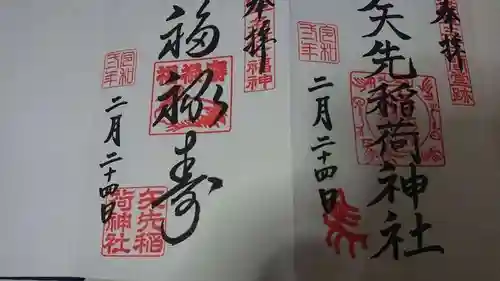 奉拝
矢先稲荷神社
令和二年
二月二十四日
奉拝
福禄寿
令和二年
二月二十四日
矢先稲荷神社